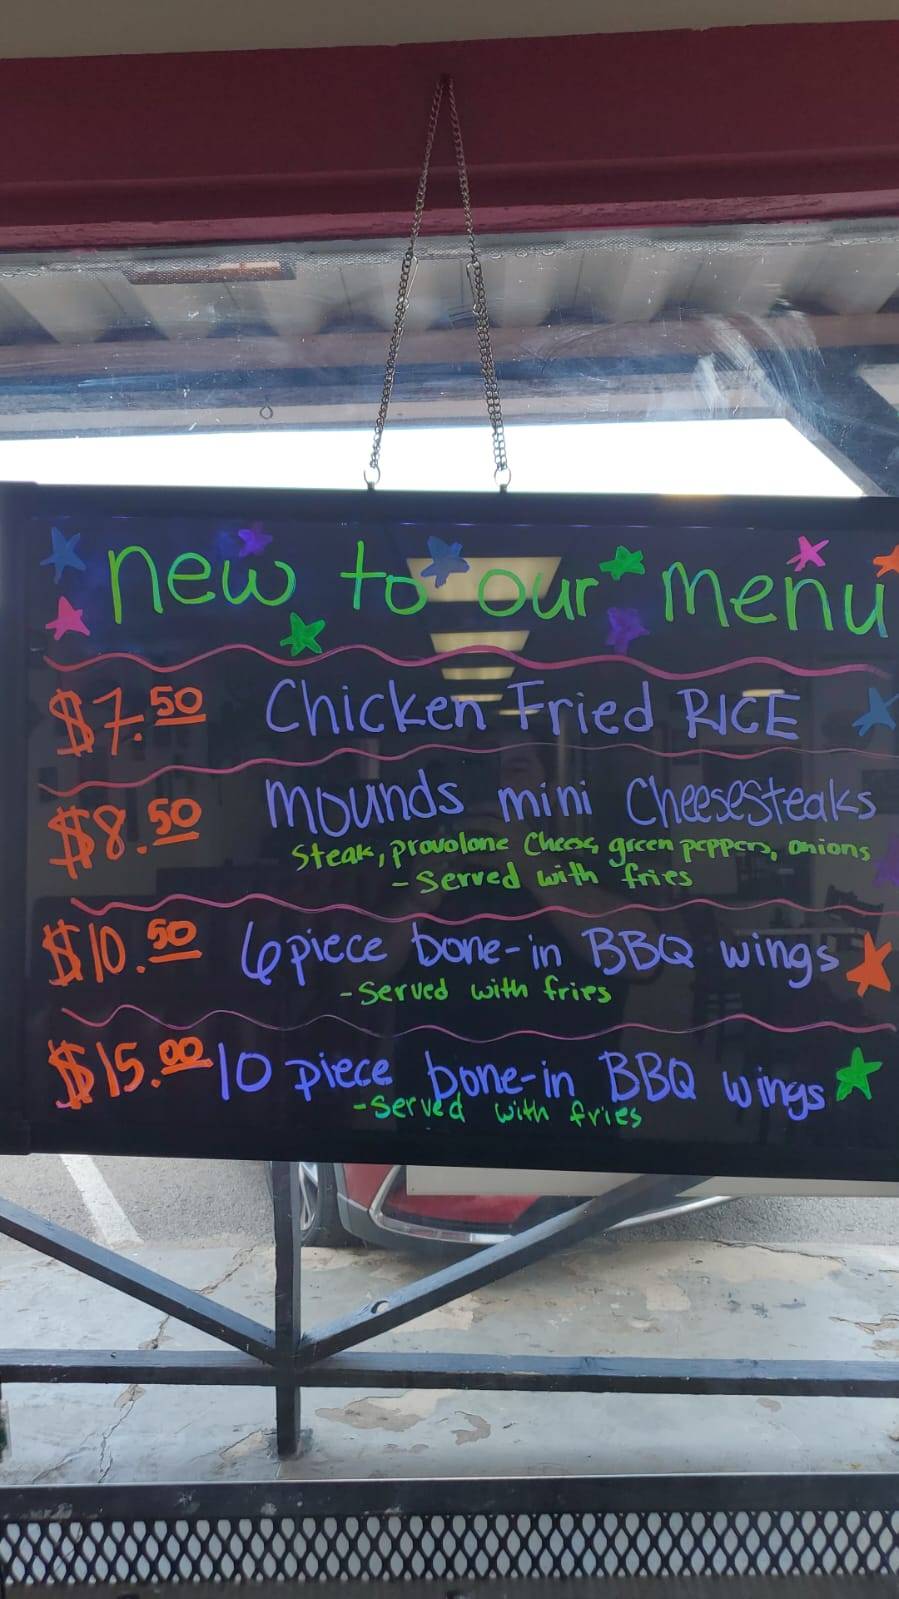 new to our menu
$7.50 Chicken Fried RICE
$8.50 mounds mini Cheesesteaks
Steak, provolone Cheese, green peppers, onions
- Served with fries
$10.50 6 piece bone-in BBQ wings
- Served with fries
$15.00 10 piece bone-in BBQ wings
- Served with fries